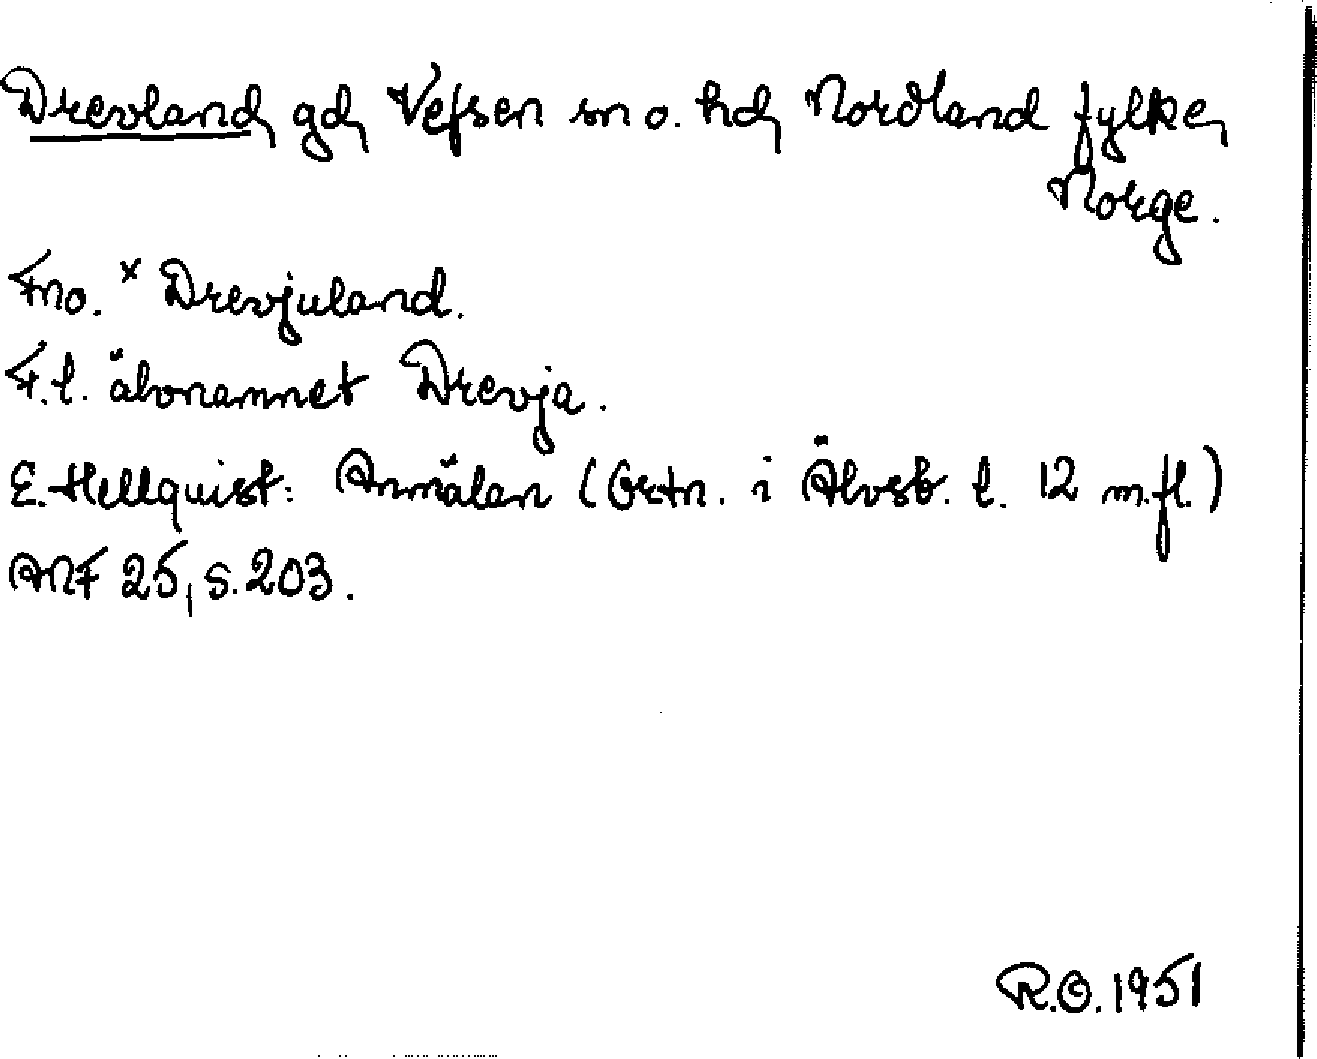 Drevland, gd, Vefsen sn o. hd, Nordland fylke,
Norge.
Fno. ˣ Drevjuland.
F.l. älvnamnet Drevja.
E. Hellquist: Anmälan (Ortn. i Älvsb. l. 12 m.fl.)
ANF 25, s. 203.
R.O. 1951